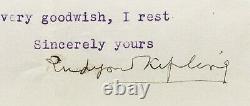 very goodwish, I rest
Sincerely yours
Rudyard Kipling